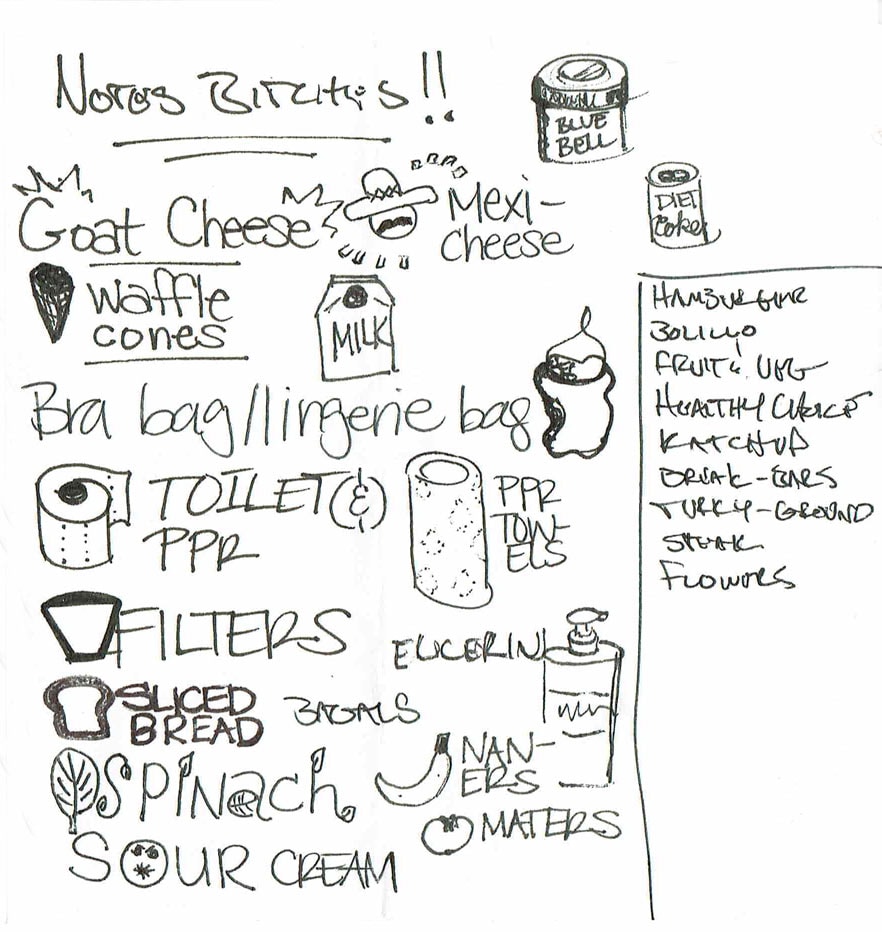 Notes Bitches!!
BLUE
BELL
DIET
Coke
Goat Cheese
Mexi-
Cheese
waffle
cones
MILK
Bra bag/lingerie bag
TOILET (&)
PPR
PPR
TOW-
ELS
FILTERS
EUCERIN
SLICED
BREAD
BAGALS
SPINach
NAN-
ERS
MATERS
SOUR CREAM
HAMBURGER
BOLILLO
FRUIT & VEG
HEALTHY CHOICE
KATCHUP
BREAK-BARS
TURKY-GROUND
STEAK
FLOWERS